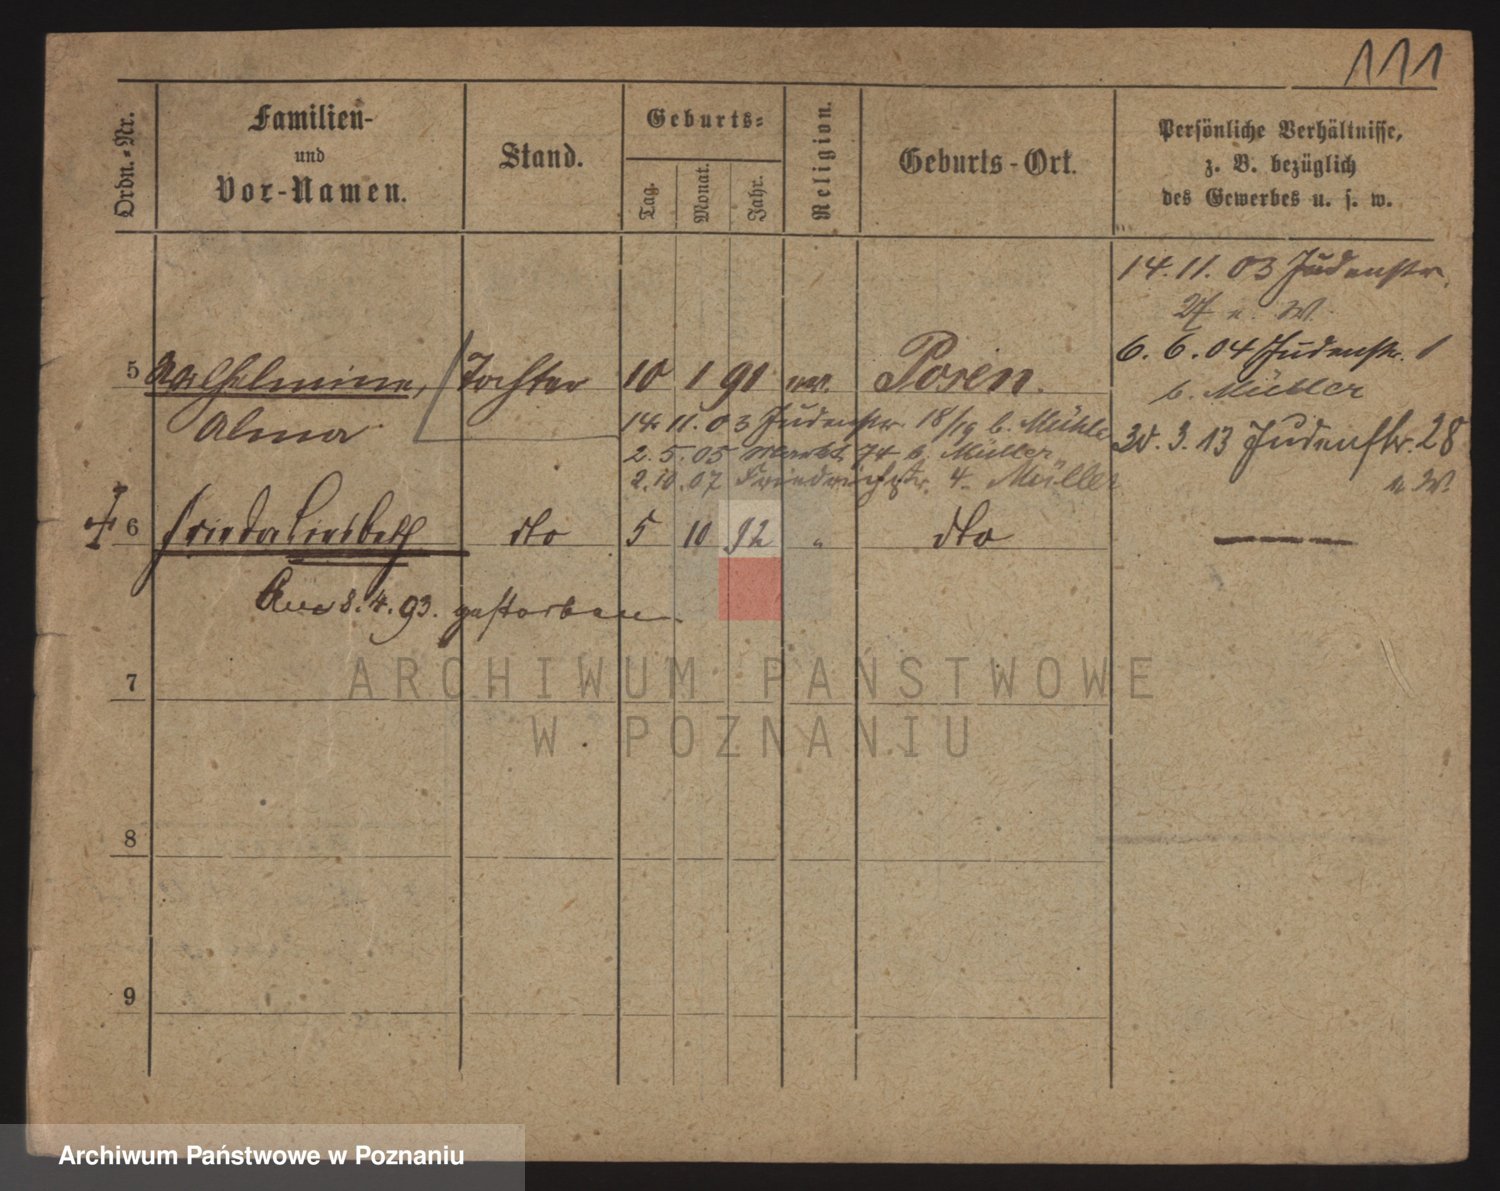 111
Ordn.-Nr.
Familien-
und
Vor-Namen.
Stand.
Geburts-
Tag.
Monat.
Jahr.
Religion.
Geburts-Ort.
Persönliche Verhältnisse,
z. B. bezüglich
des Gewerbes u. s. w.
14. 11. 03 Judenstr.
27 n. W.
5 Wilhelmine, Tochter 10 1 91 ev. Posen. 6. 6. 04 Judenstr. 1
b. Müller
Alma
14. 11. 03 Judenstr. 18/19 b. Mühle
2. 5. 05 Markt 74 b. Müller
2. 10. 07 Friedrichstr. 4. Müller
30. 3. 13 Judenstr. 28
n W.
6 Frieda Liesbeth dto 5 10 92 " dto
Am 8. 4. 93. gestorben.
7
8
9
ARCHIWUM PAŃSTWOWE
W POZNANIU
Archiwum Państwowe w Poznaniu